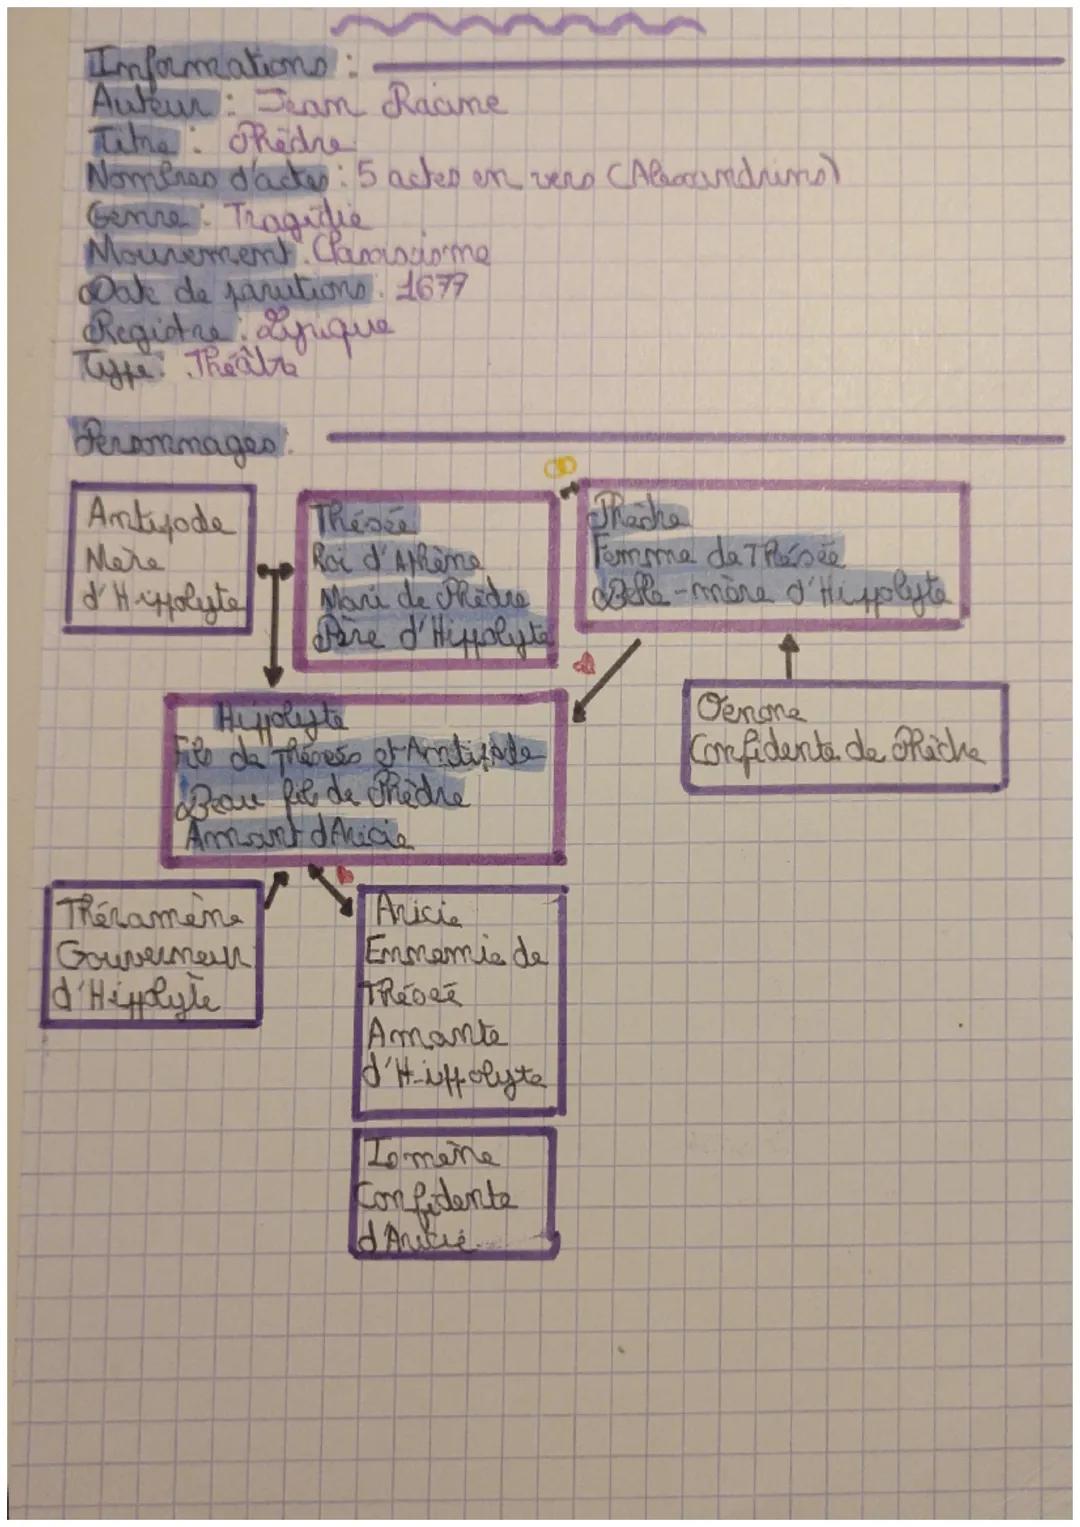 Informations :
Auteur : Jean Racine
Titre : Phèdre
Nombres d'actes : 5 actes en vers (Alexandrins)
Genre : Tragédie
Mouvement : Classicisme
Date de parutions : 1677
Registre : Lyrique
Type : Théâtre
Personnages :
Antipode
Mère
d'Hippolyte
Thésée
Roi d'Athène
Mari de Phèdre
Père d'Hippolyte
Phèdre
Femme de Thésée
Belle-mère d'Hippolyte
Hippolyte
Fils de Thésés et Antipode
Beau fils de Phèdre
Amant d'Aricie
Oenone
Confidente de Phèdre
Théramène
Gouverneur
d'Hippolyte
Aricie
Ennemie de
Thésée
Amante
d'Hippolyte
Ismène
Confidente
d'Aricie